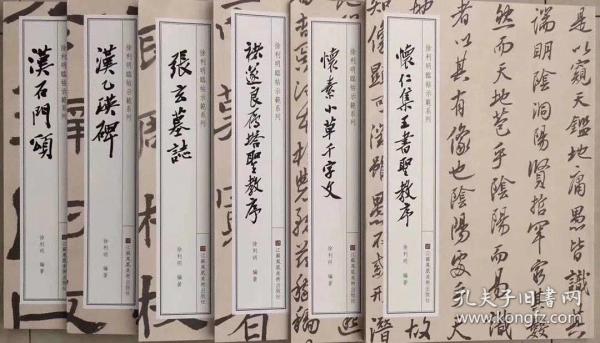 漢石門頌
徐利明臨帖示範系列
徐利明 編著
江蘇鳳凰美術出版社
漢乙瑛碑
徐利明臨帖示範系列
徐利明 編著
江蘇鳳凰美術出版社
張玄墓誌
徐利明臨帖示範系列
徐利明 編著
江蘇鳳凰美術出版社
褚遂良雁塔聖教序
徐利明臨帖示範系列
徐利明 編著
江蘇鳳凰美術出版社
懷素小草千字文
徐利明臨帖示範系列
徐利明 編著
江蘇鳳凰美術出版社
懷仁集王書聖教序
徐利明臨帖示範系列
徐利明 編著
江蘇鳳凰美術出版社
是以窺天鑑地庸愚皆識其
端明陰洞陽賢哲罕窮其數
然而天地苞乎陰陽而易識
者以其有像也陰陽處乎天
故
知像顯可徵雖愚不惑形潛
孔夫子旧书网
www.kongfz.com